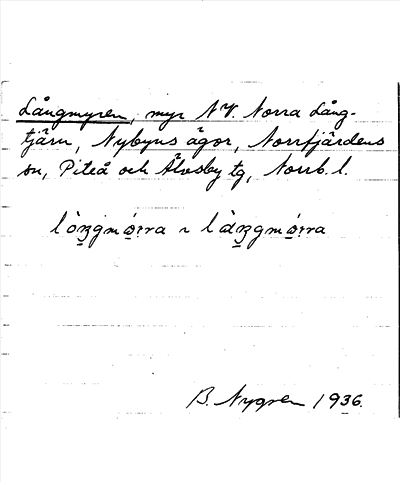 Långmyren, myr NV. Norra Lång-
tjärn, Nybyns ägor, Norrfjärdens
sn, Piteå och Älvsby tg, Norrb. l.
B. Nygren 1936.